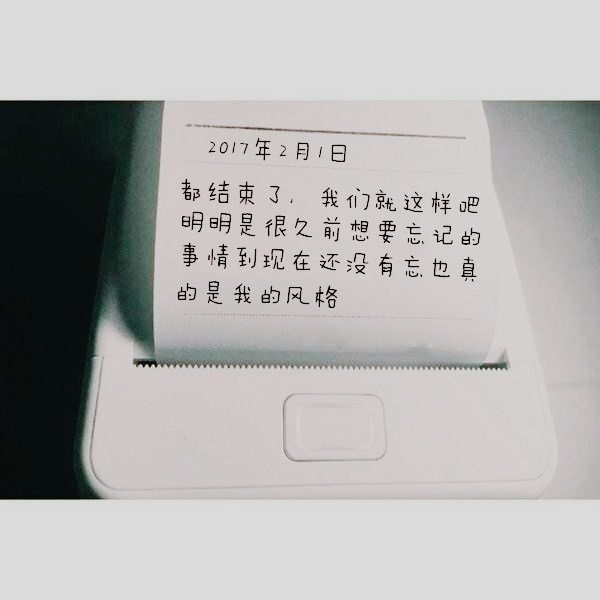 2017年2月1日
都结束了，我们就这样吧
明明是很久前想要忘记的
事情到现在还没有忘也真
的是我的风格